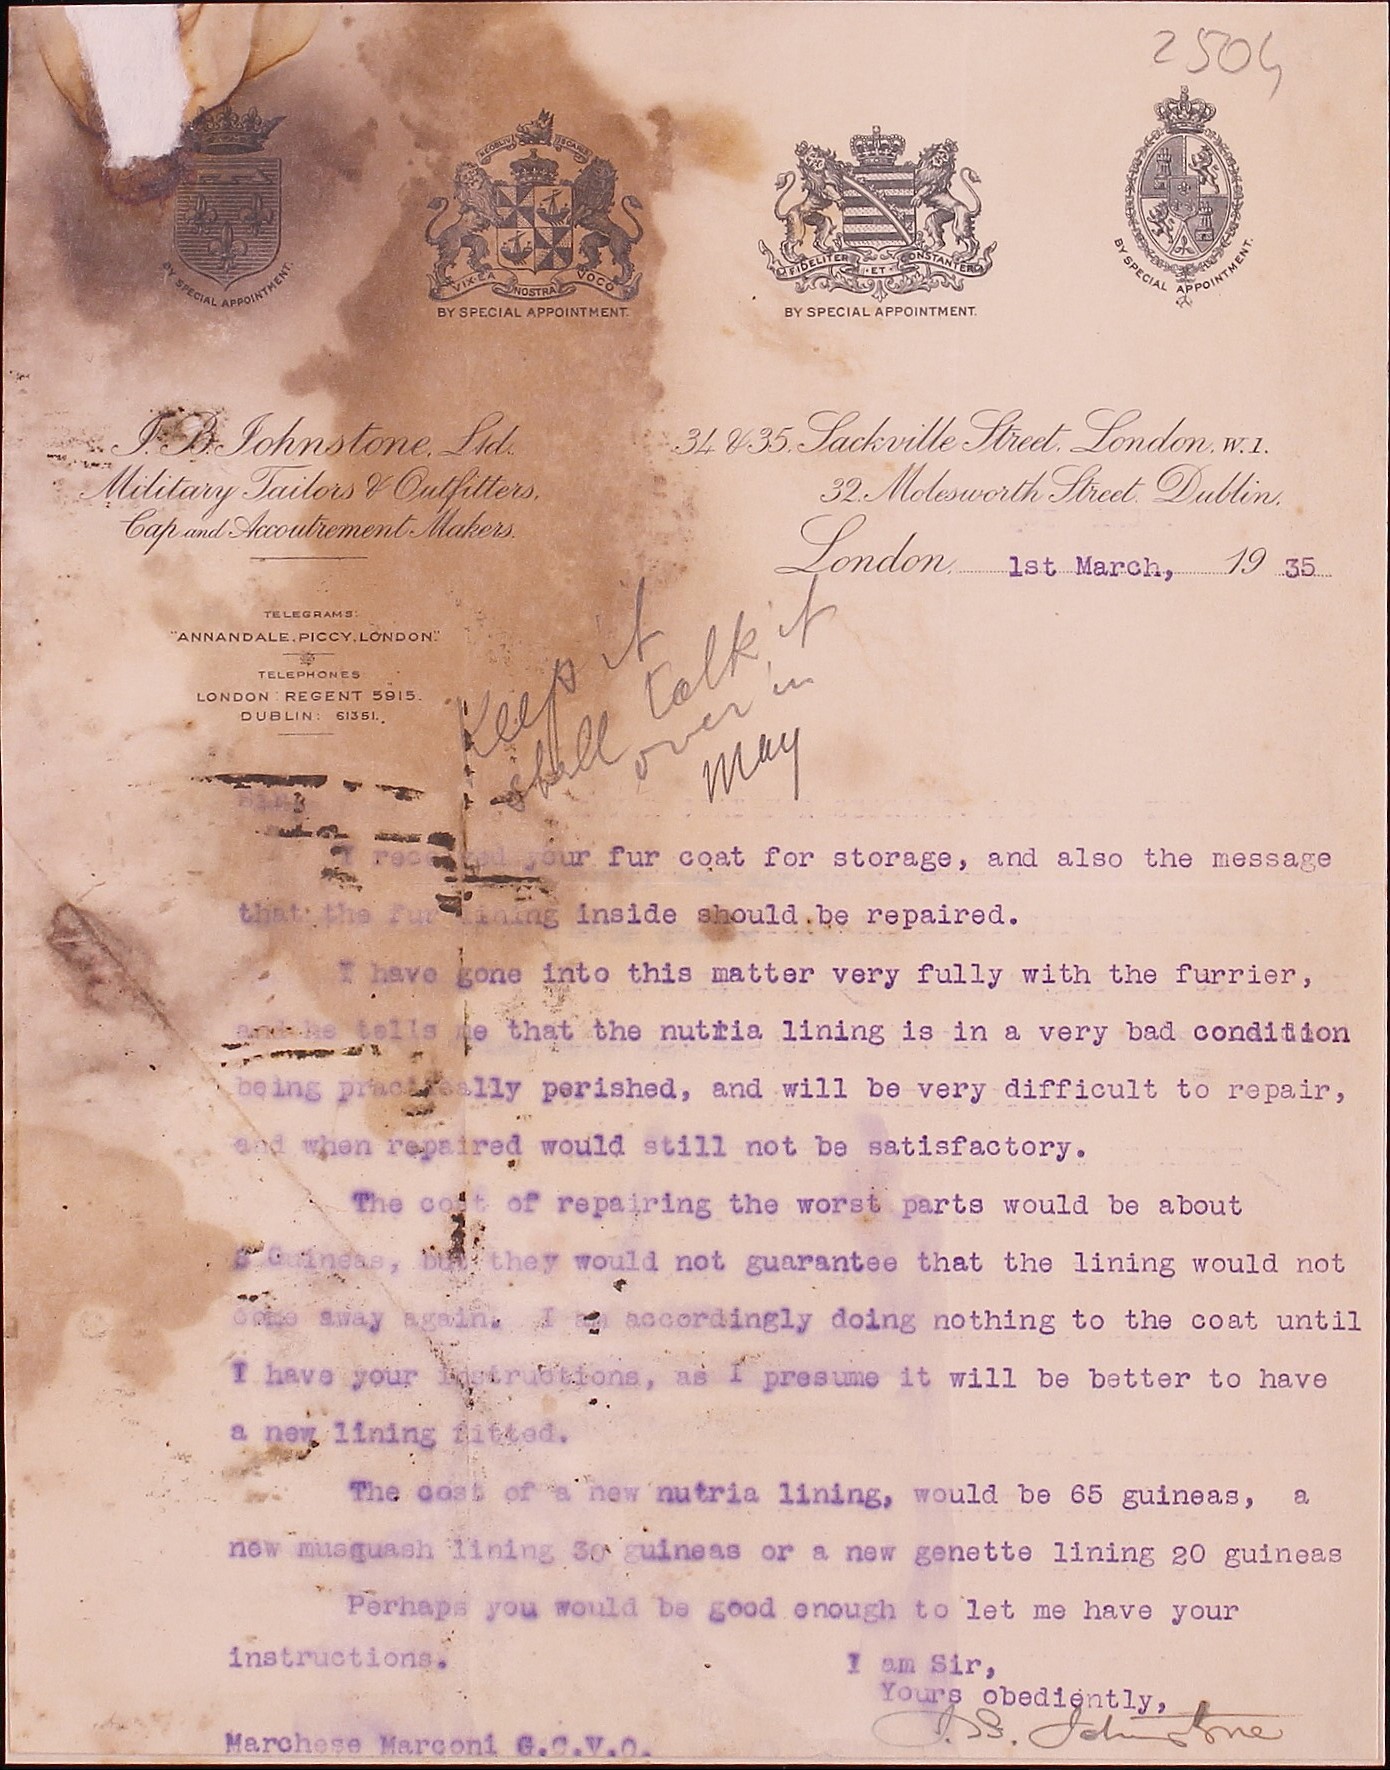 2504
BY SPECIAL APPOINTMENT.
VIX EA NOSTRA VOCO
BY SPECIAL APPOINTMENT.
FIDELITER ET CONSTANTER
BY SPECIAL APPOINTMENT.
BY SPECIAL APPOINTMENT.
J. B. Johnstone, Ltd.
Military Tailors & Outfitters,
Cap and Accoutrement Makers.
34 & 35, Sackville Street, London, W.1.
32, Molesworth Street, Dublin.
London, 1st March, 1935
TELEGRAMS:
"ANNANDALE, PICCY, LONDON."
TELEPHONES
LONDON: REGENT 5915.
DUBLIN: 61351.
Keep it
shall talk it
over in
May
I received your fur coat for storage, and also the message
that the fur lining inside should be repaired.
I have gone into this matter very fully with the furrier,
and he tells me that the nutria lining is in a very bad condition
being practically perished, and will be very difficult to repair,
and when repaired would still not be satisfactory.
The cost of repairing the worst parts would be about
Guineas, but they would not guarantee that the lining would not
come away again. I am accordingly doing nothing to the coat until
I have your instructions, as I presume it will be better to have
a new lining fitted.
The cost of a new nutria lining, would be 65 guineas, a
new musquash lining 30 guineas or a new genette lining 20 guineas
Perhaps you would be good enough to let me have your
instructions.
I am Sir,
Yours obediently,
J. B. Johnstone
Marchese Marconi G.C.V.O.